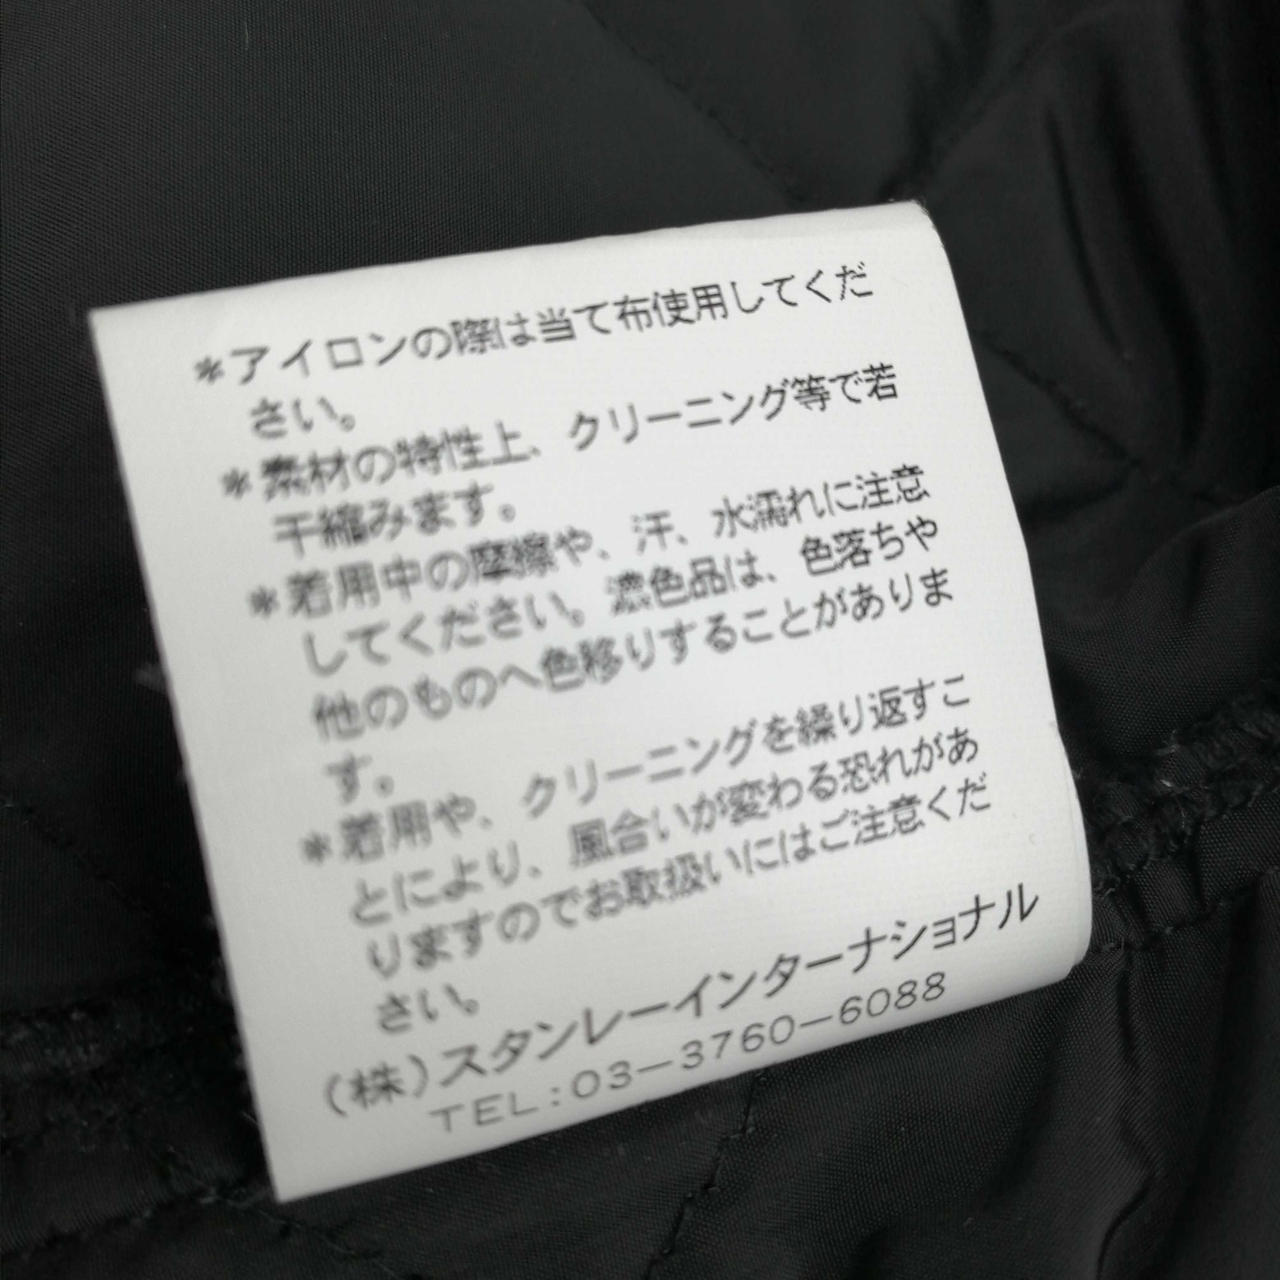 ＊アイロンの際は当て布使用してくだ
さい。
＊素材の特性上、クリーニング等で若
干縮みます。
＊着用中の摩擦や、汗、水濡れに注意
してください。濃色品は、色落ちや
他のものへ色移りすることがありま
す。
＊着用や、クリーニングを繰り返すこ
とにより、風合いが変わる恐れがあ
りますのでお取扱いにはご注意くだ
さい。
(株)スタンレーインターナショナル
TEL:03-3760-6088